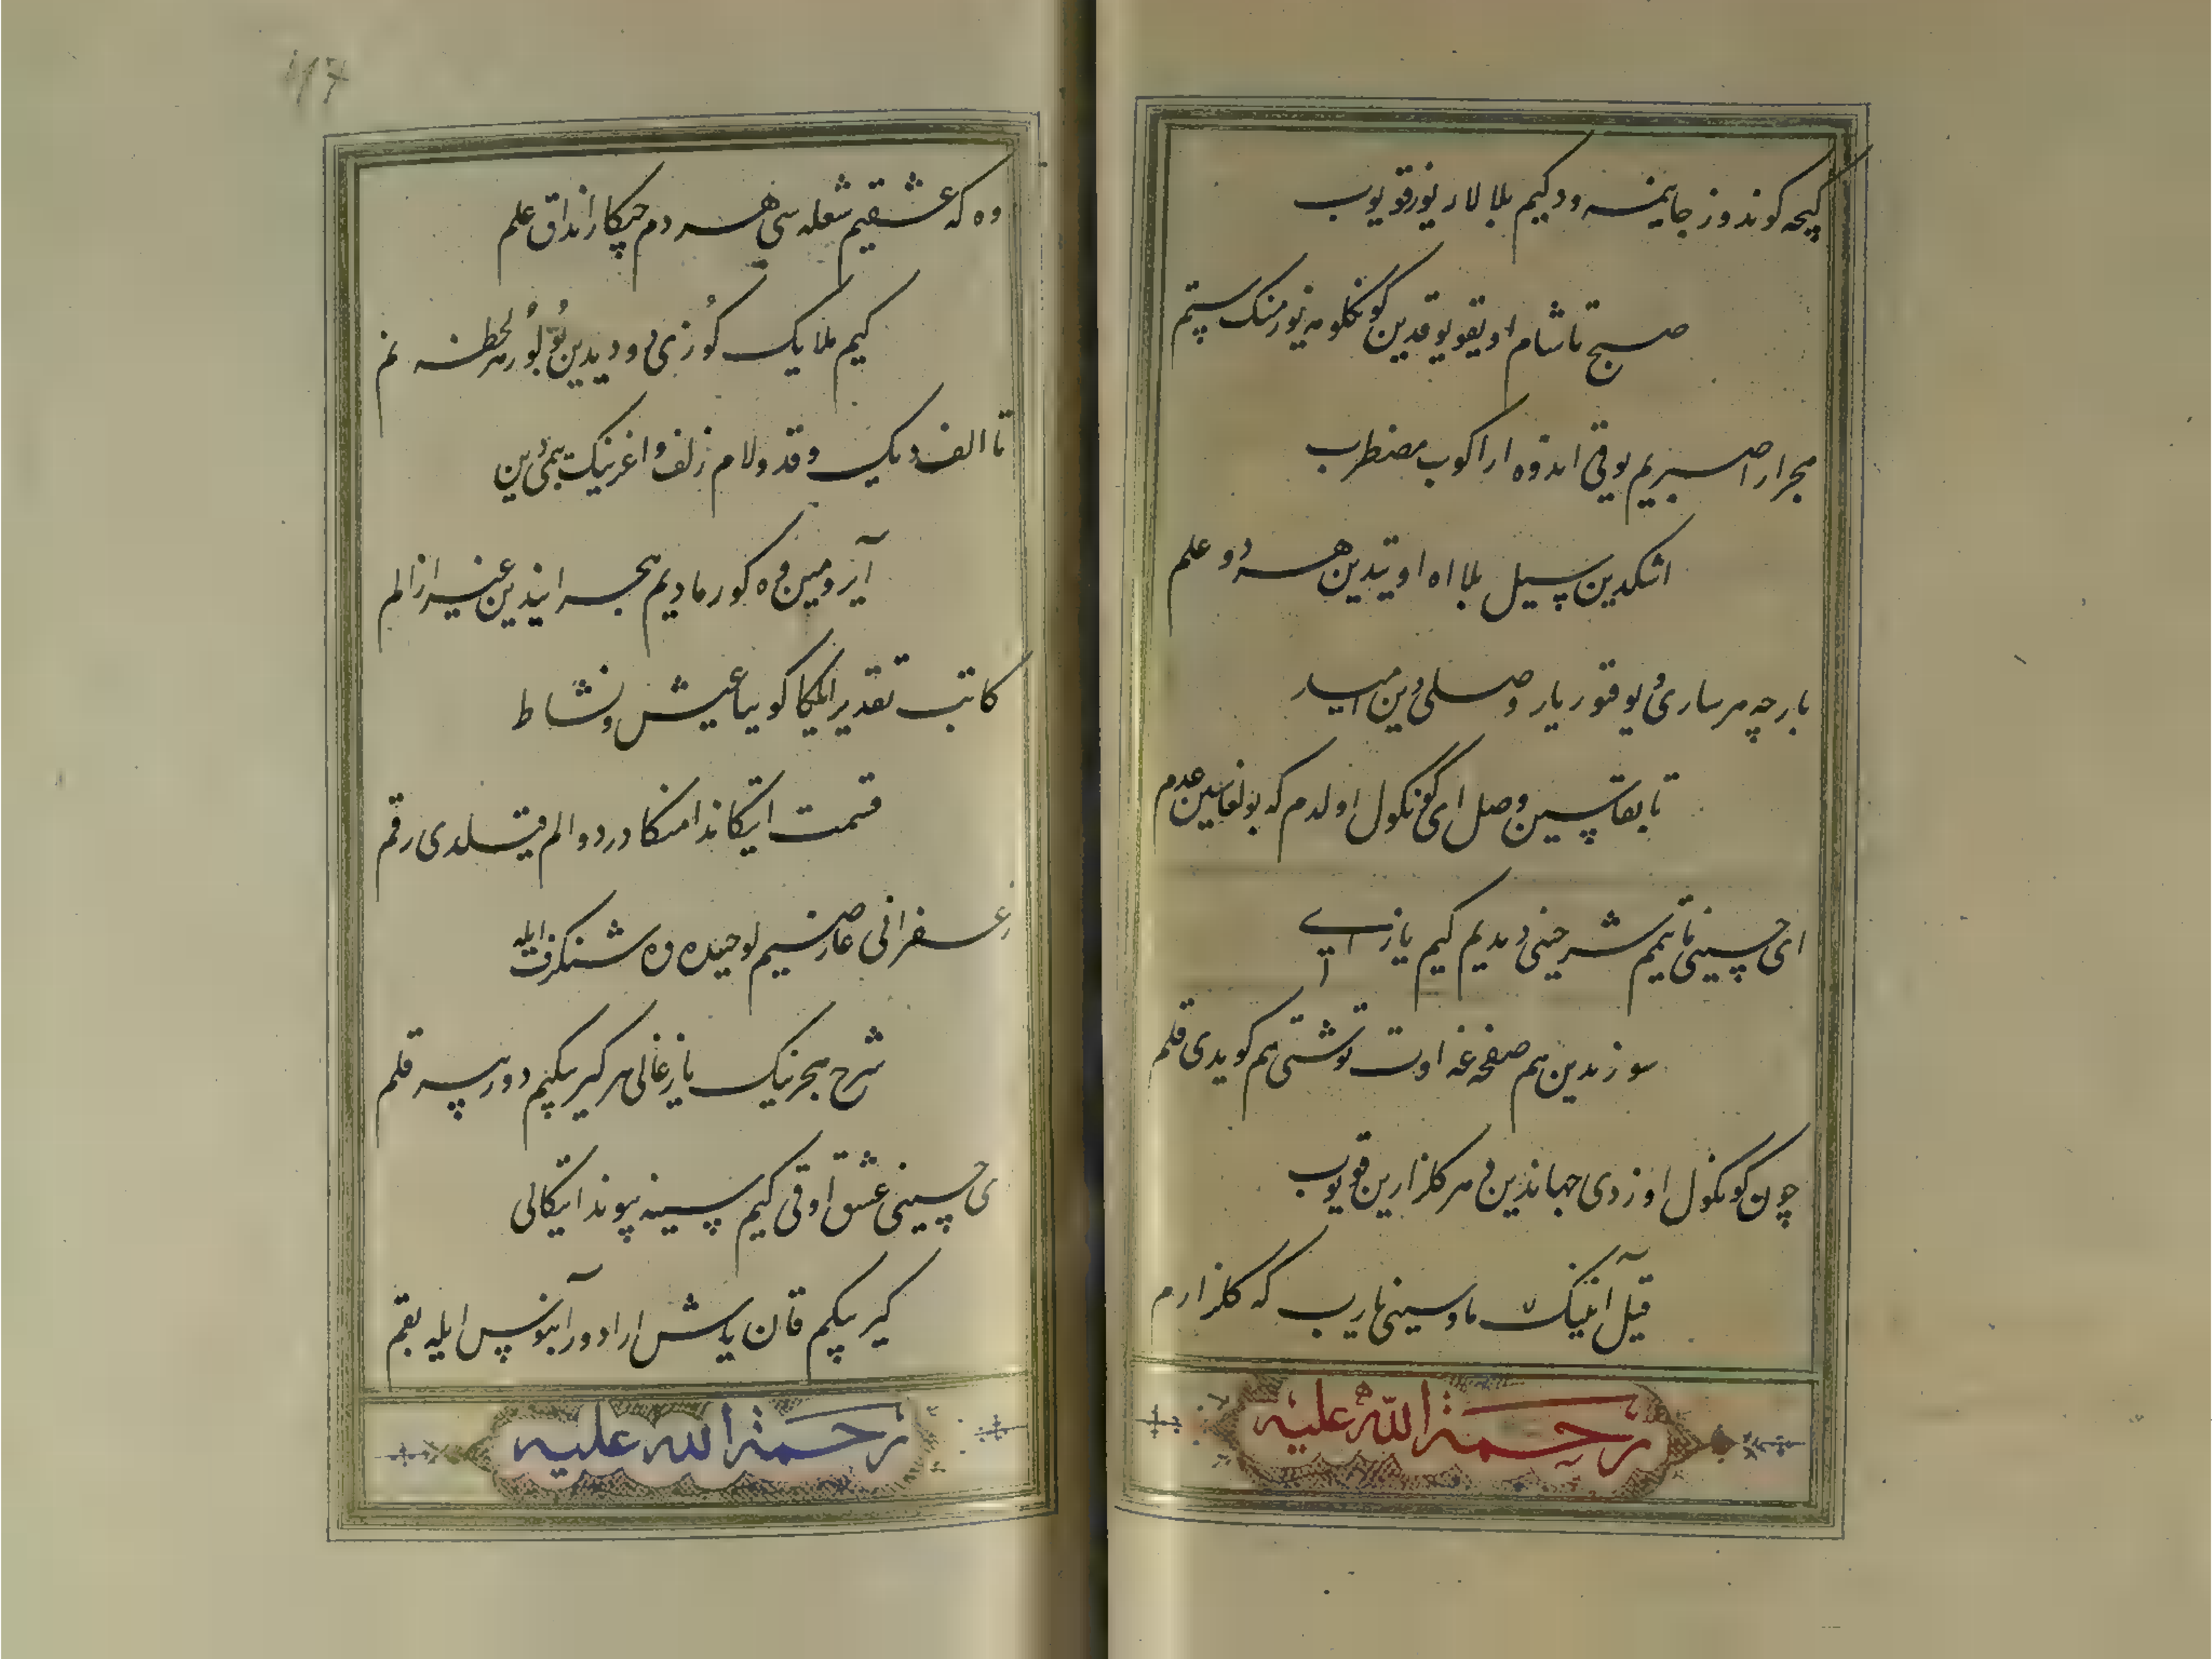 کیچه کوندوز جانیمنه ود کیم بلا لار یوز قویوب
صبح تا شام اویقو یوقدین کونکلومه یوز مینک ستم
هجر ارا صبریم یوق اندوه ارا کوب مضطرب
اشکدین سیل بلا اه اوتیدین هر دو علم
بارچه مر ساری یوقتور یار وصلی دین امید
تا بقا سین وصل ای کونکول اولدم که بولغاسین عدم
ای حسینی تا نیم شرحینی دیدیم کیم یازای
سوزیدین هم صفحه غه اوت توشتی هم کویدی قلم
چون کونکول اوزدی جهاندین هر کلزارین قویوب
قیل آنینک ماوسینی یارب که کلزار ارم
وه که عشقیم شعله سی هر دم چیکار انداق علم
کیم ملایک کوزی دودیدین بولور هر لحظه نم
تا الف دیک قد و لام زلف و اغزینک میمی دین
آیرومین وه کورمادیم هجرانیدین غیر از الم
کاتب تقدیر ایلکا کوییا عیش و نشاط
قسمت ایتکاندا منکا درد و الم قیلدی رقم
زعفرانی عارضیم لوحیده وه شنکرف ایله
شرح هجرینک یازغالی هر کیرپیکیم دور بیر قلم
ای حسینی عشق اوقی کیم سینه پیوند ایتکالی
کیرپیکیم قان یاش ارا دور آبنوس ایله بقم
رحمة الله علیه
رحمة الله علیه